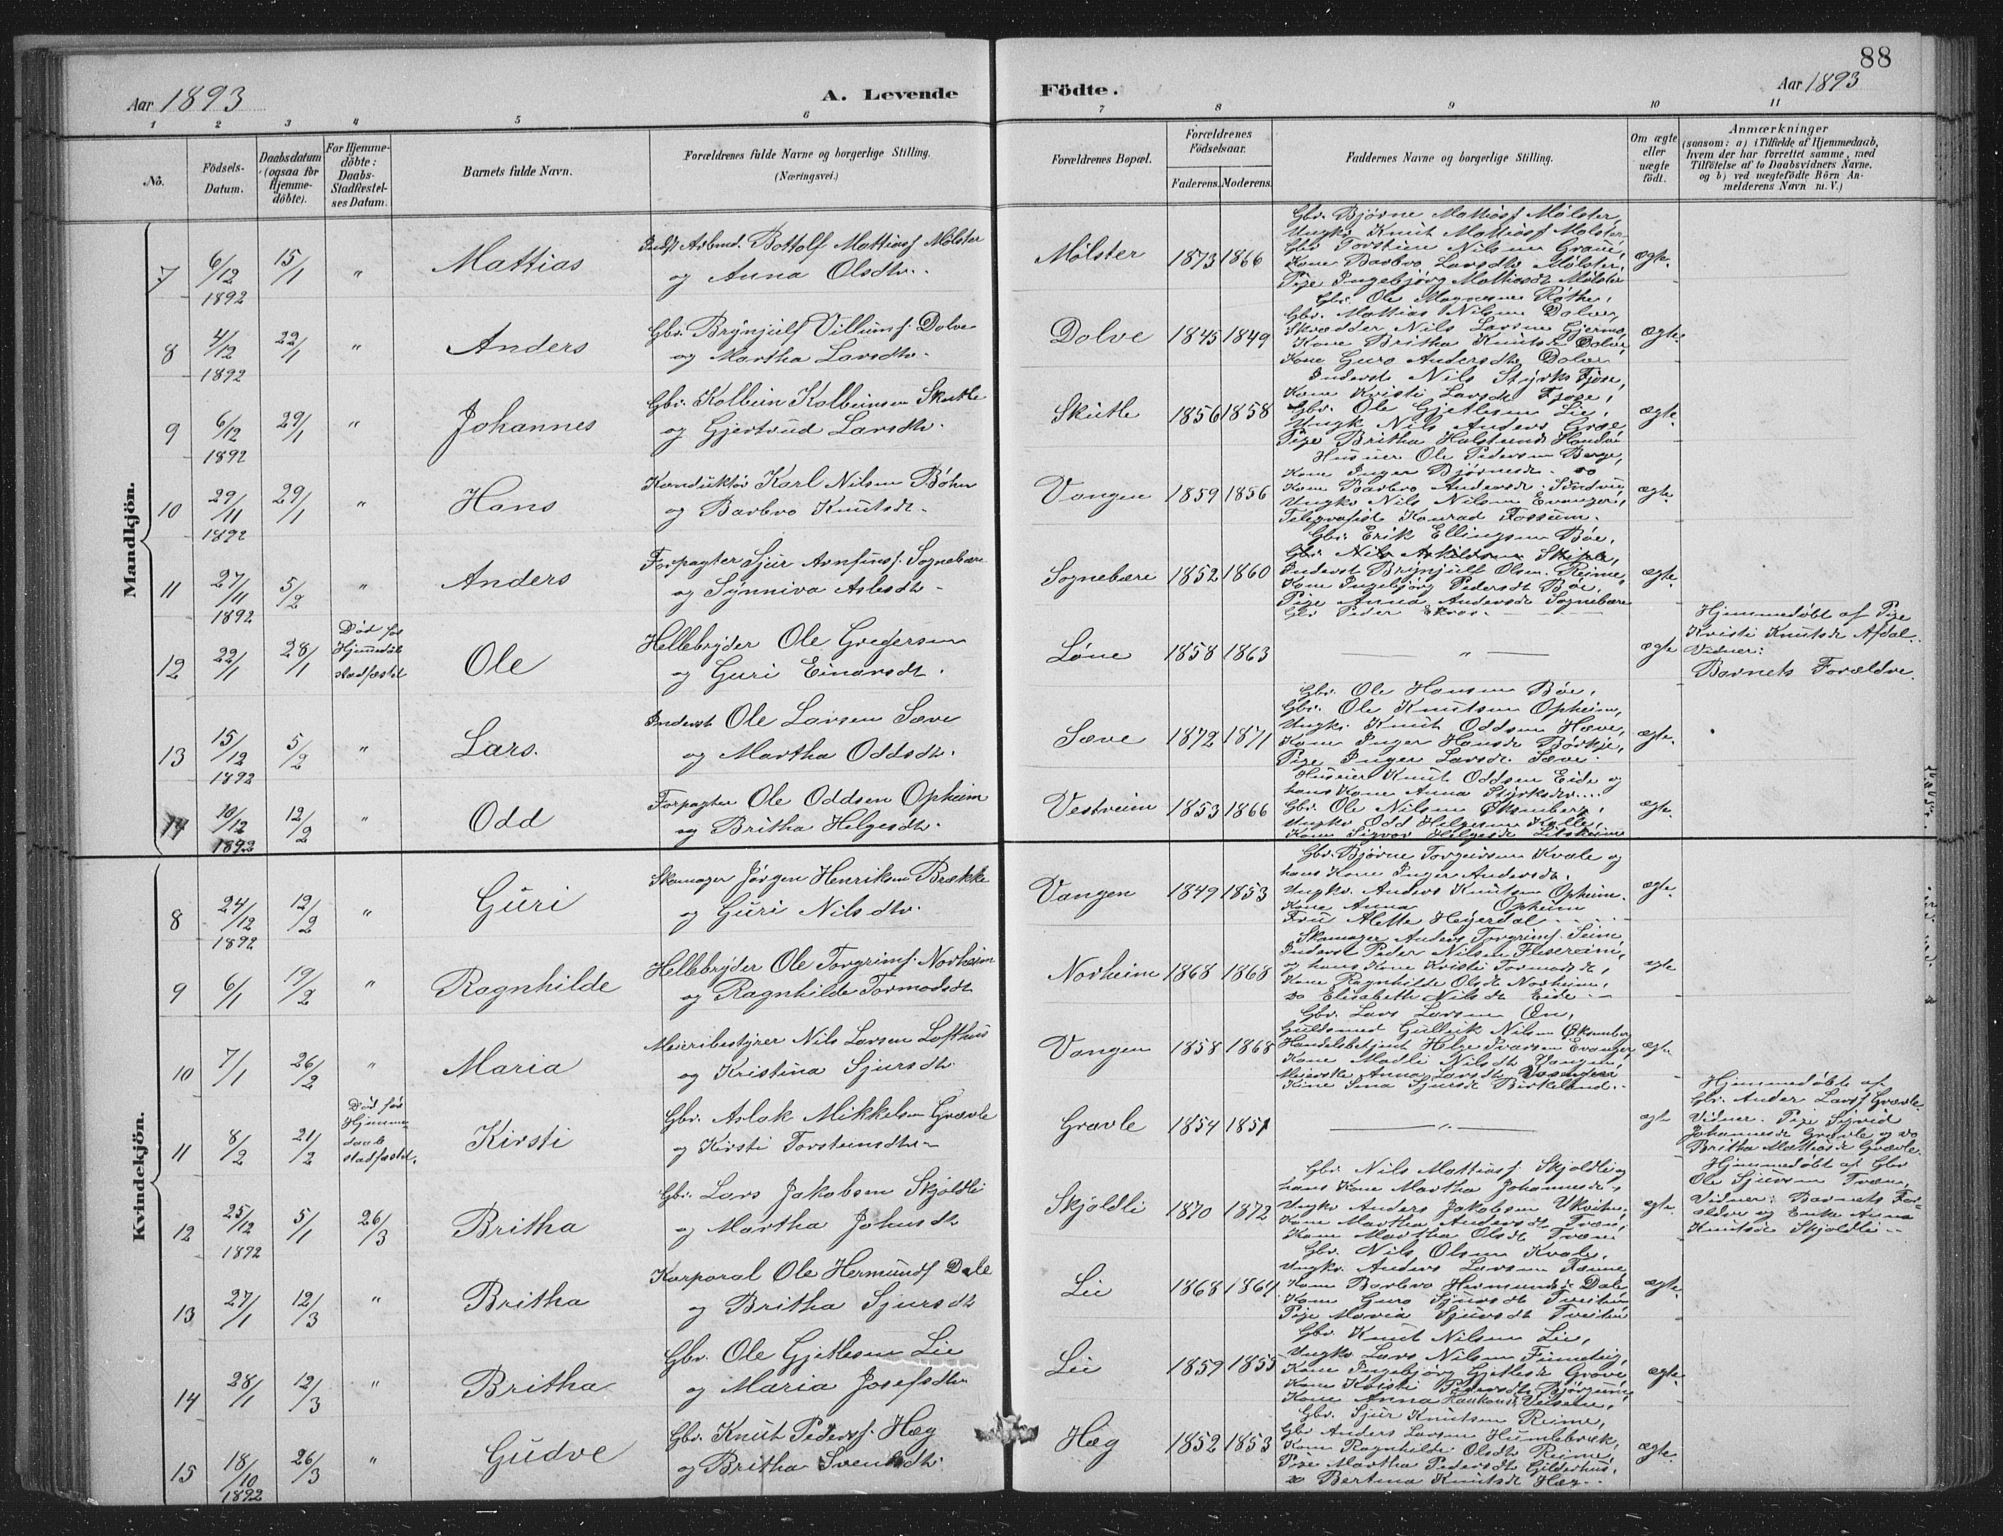 88
Aar 1893
A. Levende
Födte.
Aar 1893
1 2 3 4 5 6 7 8 9 10 11
No.
Födsels-
Datum.
Daabsdatum
(ogsaa for
Hjemme-
döbte).
For Hjemme-
döbte:
Daabs-
Stadfæstel-
ses Datum.
Barnets fulde Navn.
Forældrenes fulde Navne og borgerlige Stilling.
(Næringsvei.)
Forældrenes Bopæl.
Forældrenes
Födselsaar.
Faderens. Moderens.
Faddernes Navne og borgerlige Stilling.
Om ægte
eller
uægte
födt.
Anmærkninger
(saasom: a) i Tilfælde af Hjemmedaab,
hvem der har forrettet samme, med
Tilföielse af to Daabsvidners Navne,
og b) ved uægtefödte Börn An-
melderens Navn m. V.)
Mandkjön.
7 6/12 1892 15/1 " Mattias
Bottolf Mattiasf Mølster
og Anna Olsdtr.
Mølster 1873 1866
Gbr. Bjørne Mattiasf Mølster,
Ungk. Knut Mattiasf Mølster
Gbr Torstein Nilsen Graue,
Kone Barbro Larsdtr Mølster,
Pige Ingebjørg Mattiasdt Mølster
ægte.
8 4/12 1892 22/1 " Anders
Gbr. Brynjulf Villumf. Dolve
og Martha Larsdtr.
Dolve 1845 1849
Gbr. Ole Magnesen Røthe,
Gbr. Mattias Nilsen Dolve,
Skrædder Nils Larsen Gjerme,
Kone Britha Knutsdt Dolve,
Kone Guro Andersdtr Dolve
ægte.
9 6/12 1892 29/1 " Johannes
Gbr. Kolbein Kolbeinsen Skutle
og Gjertrud Larsdtr.
Skutle 1856 1858
Inderst Nils Styrks Fjose,
Kone Kristi Larsdt Fjose,
Gbr. Ole Gjetlesen Lie,
Ungk Nils Anders
Pige Britha
ægte.
10 29/11 1892 29/1 " Hans
Konduktør Karl Nilsen Bøhn
og Barbro Knutsdt.
Vangen 1859 1856
Husmer Ole Pedersen Berge,
Kone Inger Bjørnesdt. do
Kone Barbro Andersdt.
Ungk. Nils Nilsen Evanger,
Telegrafist Konrad Fossum.
ægte.
11 27/11 1892 5/2 " Anders
Forpagter Sjur Arnfinsf. Sognebære
og Synniva Aslesdtr.
Sognebære 1852 1860
Gbr. Erik Ellingsen Bøe,
Gbr. Nils Askildsen Skiple,
Inderst Brynjulf Olsen Reime,
Kone Ingebjørg Pedersdt Bøe,
Pige Anna Andersdt Sognebære
Gbr Peder
ægte.
12 22/1 28/1
Død før
Hjemmedaab
stadfæstet
Ole
Hellebryder Ole Gregersen
og Guri Einarsdt.
Løne 1858 1863
— " —
ægte
Hjemmedøbt af Pige
Kristi Knutsdt Afdal.
Vidner:
Barnets Forældre.
13 15/12 1892 5/2 " Lars.
Inderst Ole Larsen Sæve
og Martha Oddsdtr.
Sæve 1872 1871
Gbr. Ole Hansen Bøe,
Gbr. Ole Knutsen Opheim,
Ungk. Knut Oddsen Hæve,
Kone Inger Hansdt Børkje,
Pige Inger Larsdt Sæve.
ægte.
14 10/12 1892 12/2 " Odd
Forpagter Ole Oddsen Opheim
og Britha Helgesdtr.
Vestreim 1853 1866
Husmer Knut Oddsen Eide og
hans Kone Anna Styrksdtr.
Gbr. Ole Nilsen Øksenberg,
Ungk. Odd Helgesen Kylle,
Kone Sigvor Helgesdt
ægte.
Kvindekjön.
8 24/12 1892 12/2 " Guri
Skomager Jørgen Henriksen Brække
og Guri Nilsdtr.
Vangen 1849 1853
Gbr. Bjørne Torgeirsen Kvale og
hans Kone Inger Andersdt.
Ungk. Anders Knutsen Opheim.
Kone Anna Opheim
Fru Alette Heyerdal
ægte.
9 6/1 19/2 " Ragnhilde
Hellebryder Ole Torgrimf. Norheim
og Ragnhilde Tormodsdt
Norheim 1868 1868
Skomager Anders Torgrimf. Seim,
Inderst Peder Nilsen
og hans Kone Kristi Tormodsdt,
Kone Ragnhilde Olsdt Norheim,
do Elisabeth Nilsdt Eide.
ægte
10 7/1 26/2 " Maria
Meieribestyrer Nils Larsen Lofthus
og Kristina Sjursdtr.
Vangen 1858 1868
Gbr. Lars Larsen Øn,
Guldsmed Gullеik Nilsen Øksenberg
Handelsbetjent Helge Ivarsen Evanger
Kone Madli Nilsdt Vangen,
Meierske Anna Larsdt
Kone Sina Sjursdt Birkeland.
ægte
11 8/2 21/2
Død før
Hjemme-
daab
stadfæstet.
Kirsti
Gbr. Aslak Mikkelsen Gravle
og Kirsti Torsteinsdtr.
Gravle 1854 1851
— " —
ægt
Hjemmedøbt af
Gbr. Ander Larsf Grævle.
Vidner. Pige Sigrid
Johannesdt Grævle og do
Britha Mattiasdt Grævle.
12 25/12 1892 5/1 26/3 Britha
Gbr. Lars Jakobsen Skjoldli
og Martha Johnsdt
Skjoldli 1870 1872
Gbr. Nils Mattiasf Skjoldli og
hans Kone Martha Johannesdt,
Ungk. Anders Jakobsen Ukvitne,
Kone Martha Andersdt
Kone Martha Olsdt
ægte.
Hjemmedøbt af Gbr
Ole Sjursen
Vidner: Barnets For-
ældre og Enke Anna
Knutsdt Skjoldli.
13 27/1 12/3 " Britha
Korporal Ole Hermundf Dale
og Britha Sjursdt
Lie 1868 1864
Gbr. Nils Olsen Kvale,
Ungk. Anders Larsen
Kone Barbro Hermundsdt Dale
Kone Guro Sjursdt
Pige Maria Sjursdt
ægte.
14 28/1 12/3 " Britha
Gbr. Ole Gjetlesen Lie
og Maria Josefsdtr
Lie 1859 1855
Gbr Knut Nilsen Lie,
Ungk. Lars Nilsen Finneteig,
Kone Ingebjørg Gjetlesdt Grove,
Kone Kristi Pedersdt
Kone Anna
ægte.
15 18/10 1892 26/3 " Gudve
Gbr. Knut Pedersf. Hæg
og Britha Svendsdtr.
Hæg 1852 1853
Gbr. Sjur Knutsen Reime,
Gbr Anders Larsen Humlebræk,
Kone Ragnhilde Olsdt Reime,
Pige Martha Pedersdt Gilderhus,
do Bertina Knutsdt Hæg.
ægte.